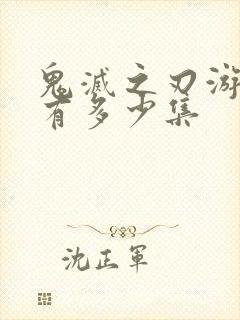 鬼滅之刃游
有多少集
沈正軍